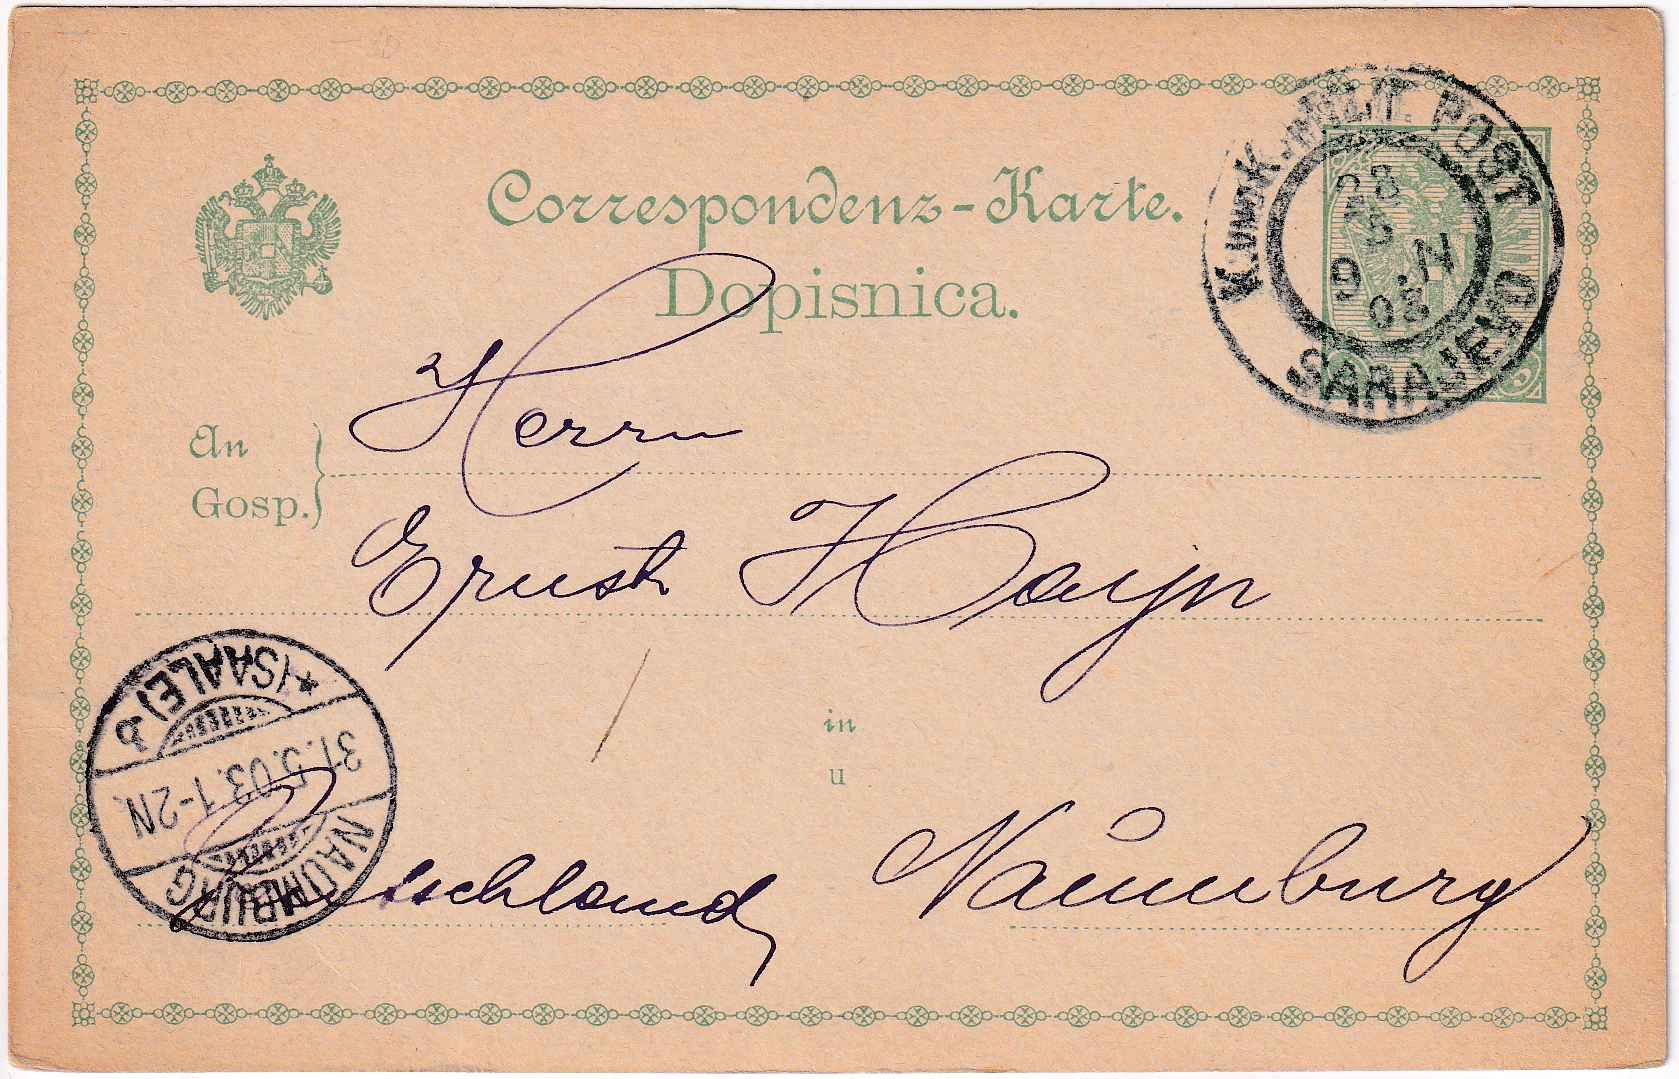 Correspondenz-Karte.
Dopisnica.
K. UND K. MILIT. POST
SARAJEVO
5
9 .N
03
An
Gosp.
Herrn
Ernst Hayn
in
u
Naumburg
Deutschland
NAUMBURG
31.5.03.1-2N.
*(SAALE) b